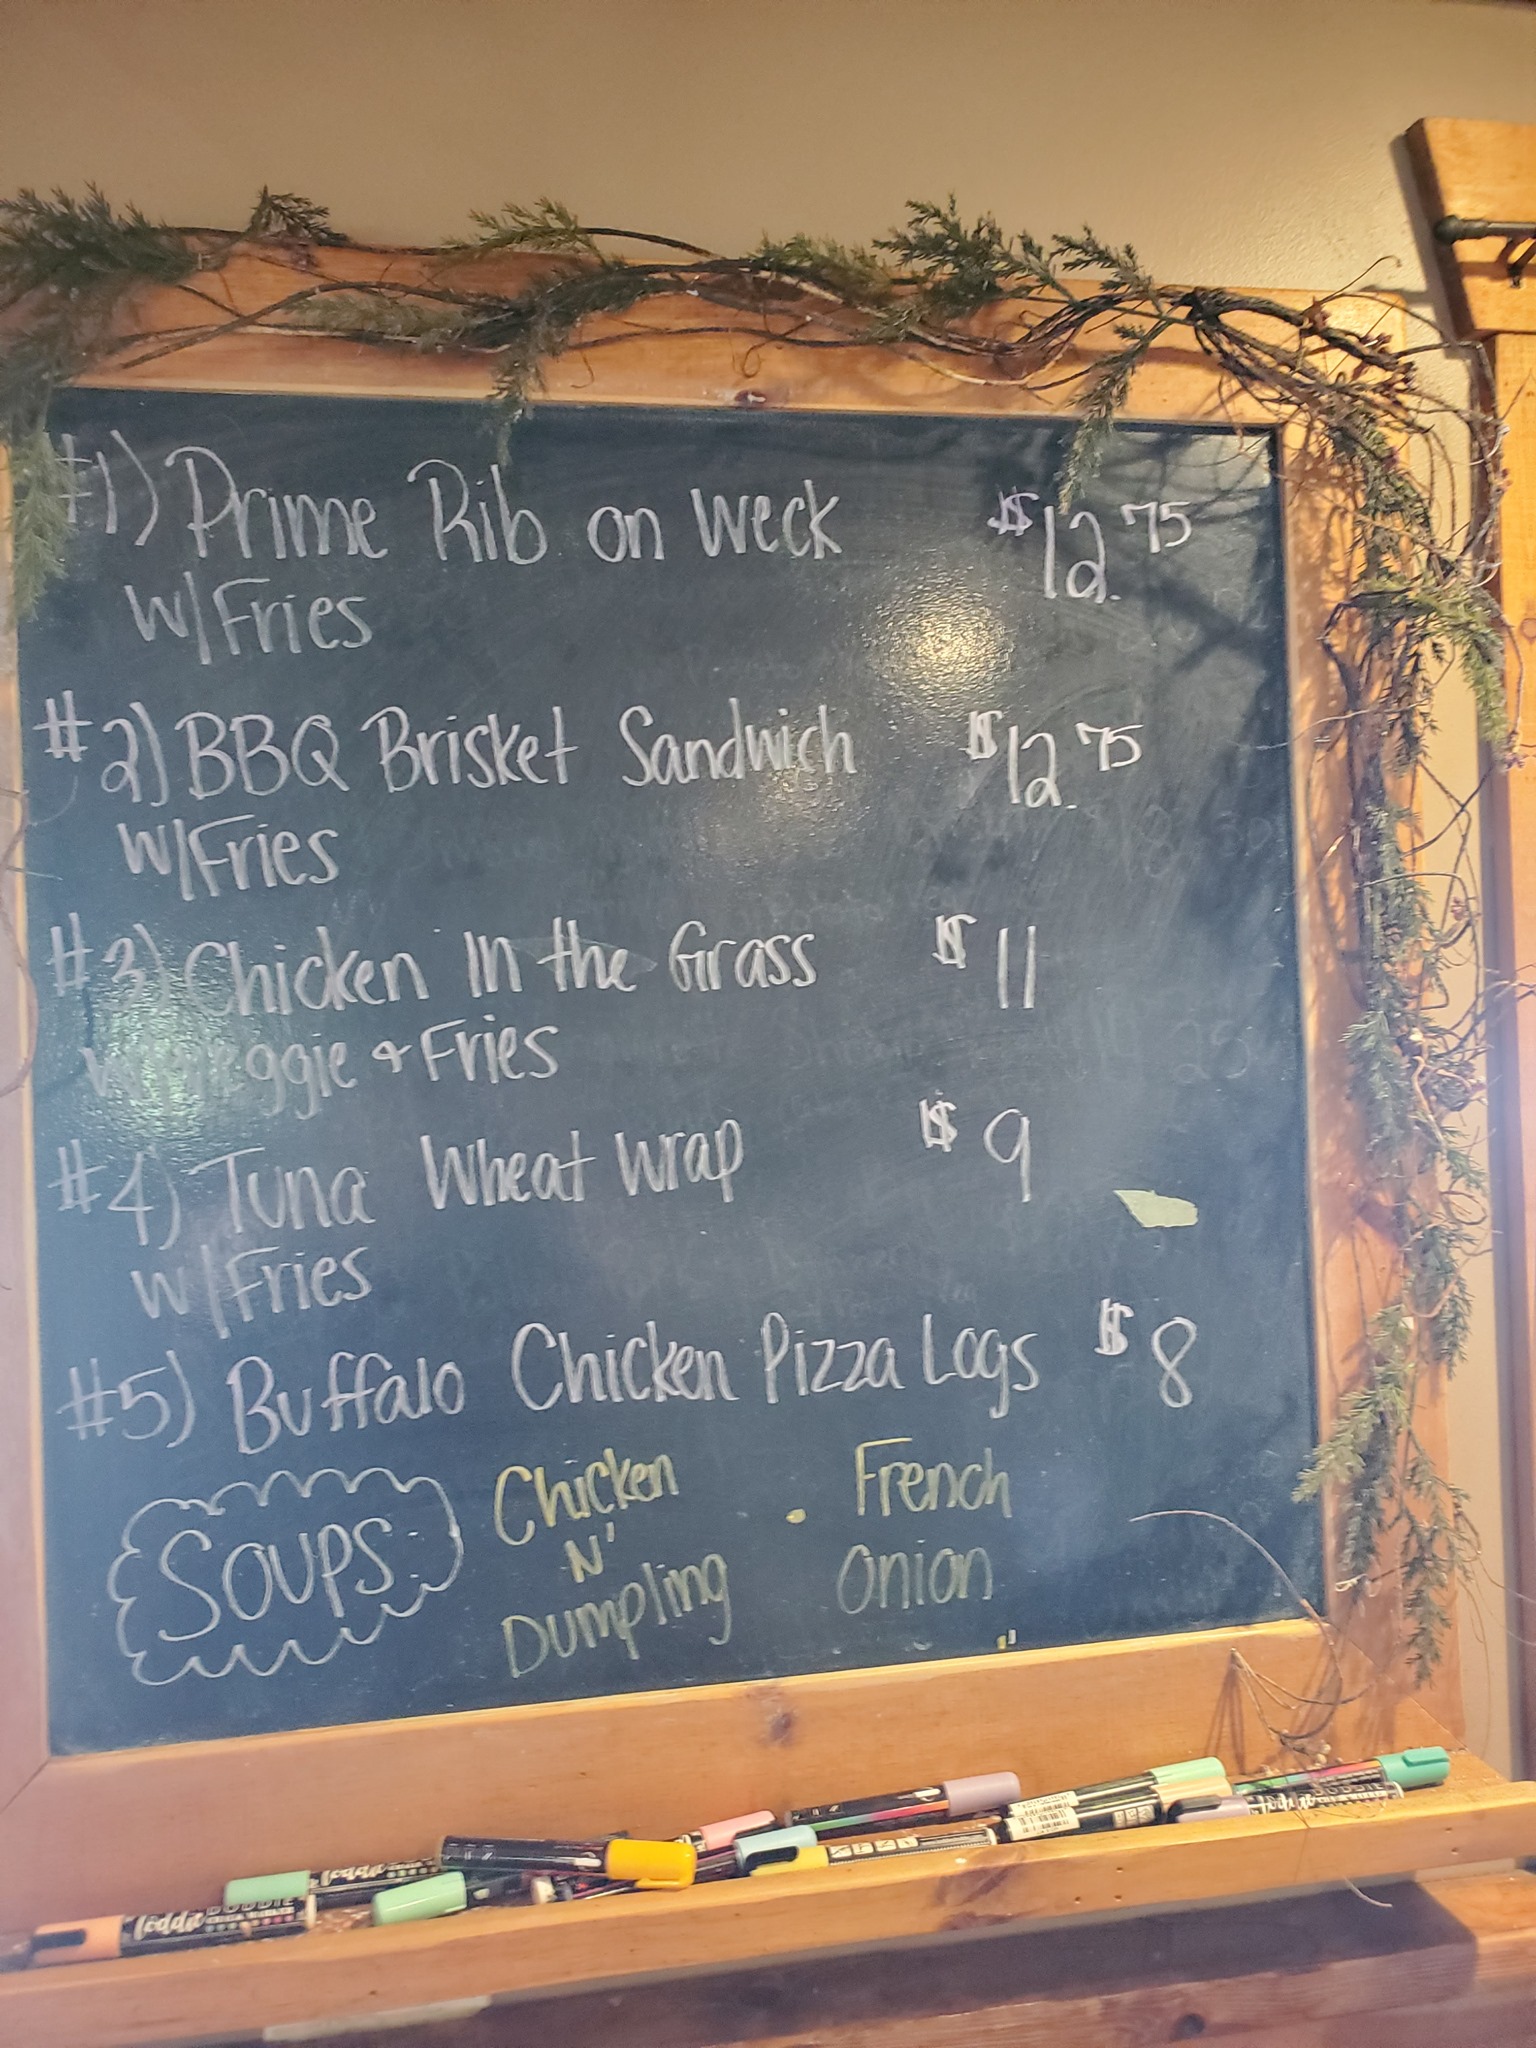 #1) Prime Rib on Weck $12.75
w/Fries
#2) BBQ Brisket Sandwich $12.75
w/Fries
#3) Chicken In the Grass $11
w/veggie & Fries
#4) Tuna Wheat Wrap $9
w/Fries
#5) Buffalo Chicken Pizza Logs $8
Soups: Chicken N' Dumpling . French Onion